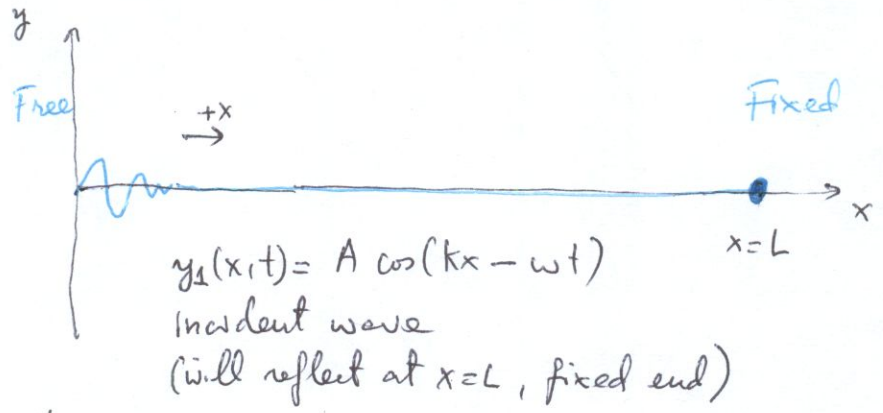 y
Free
+x
Fixed
x
x=L
y₁(x,t)= A cos(kx − ωt)
Incident wave
(will reflect at x=L, fixed end)